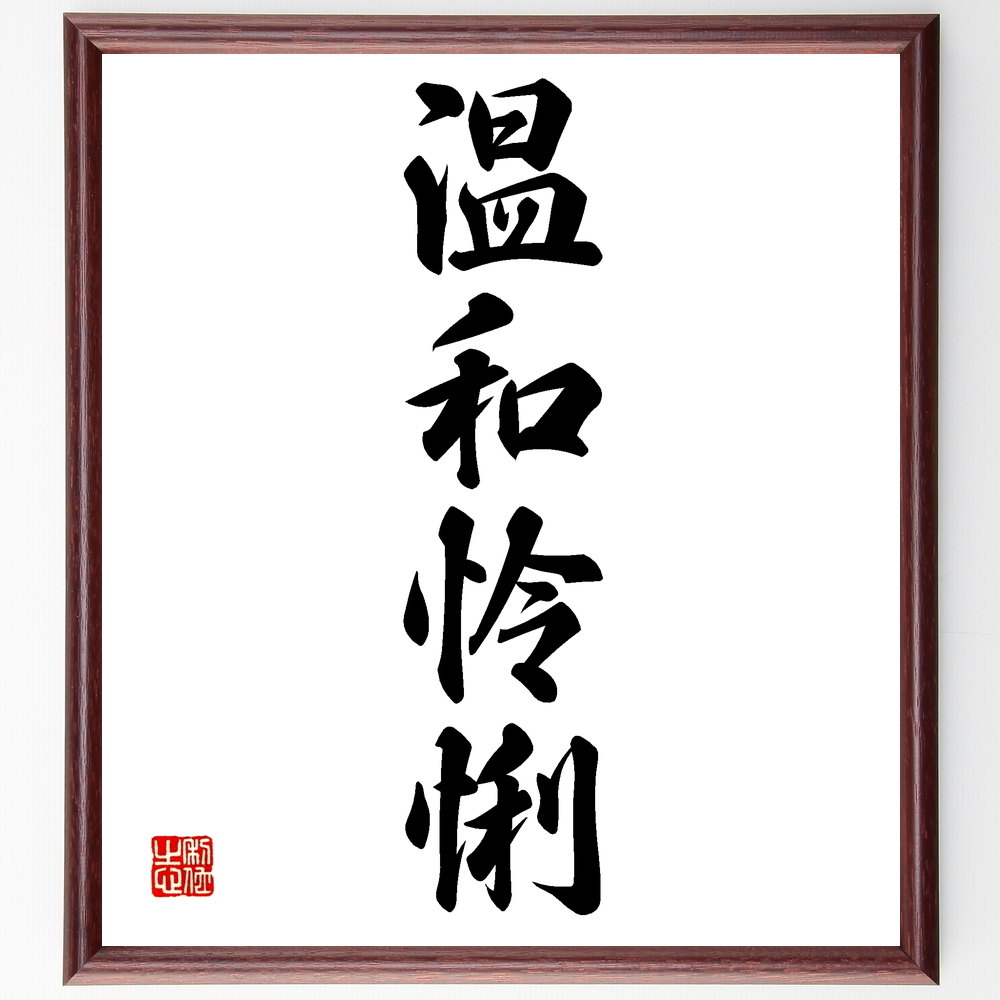 温和怜悧